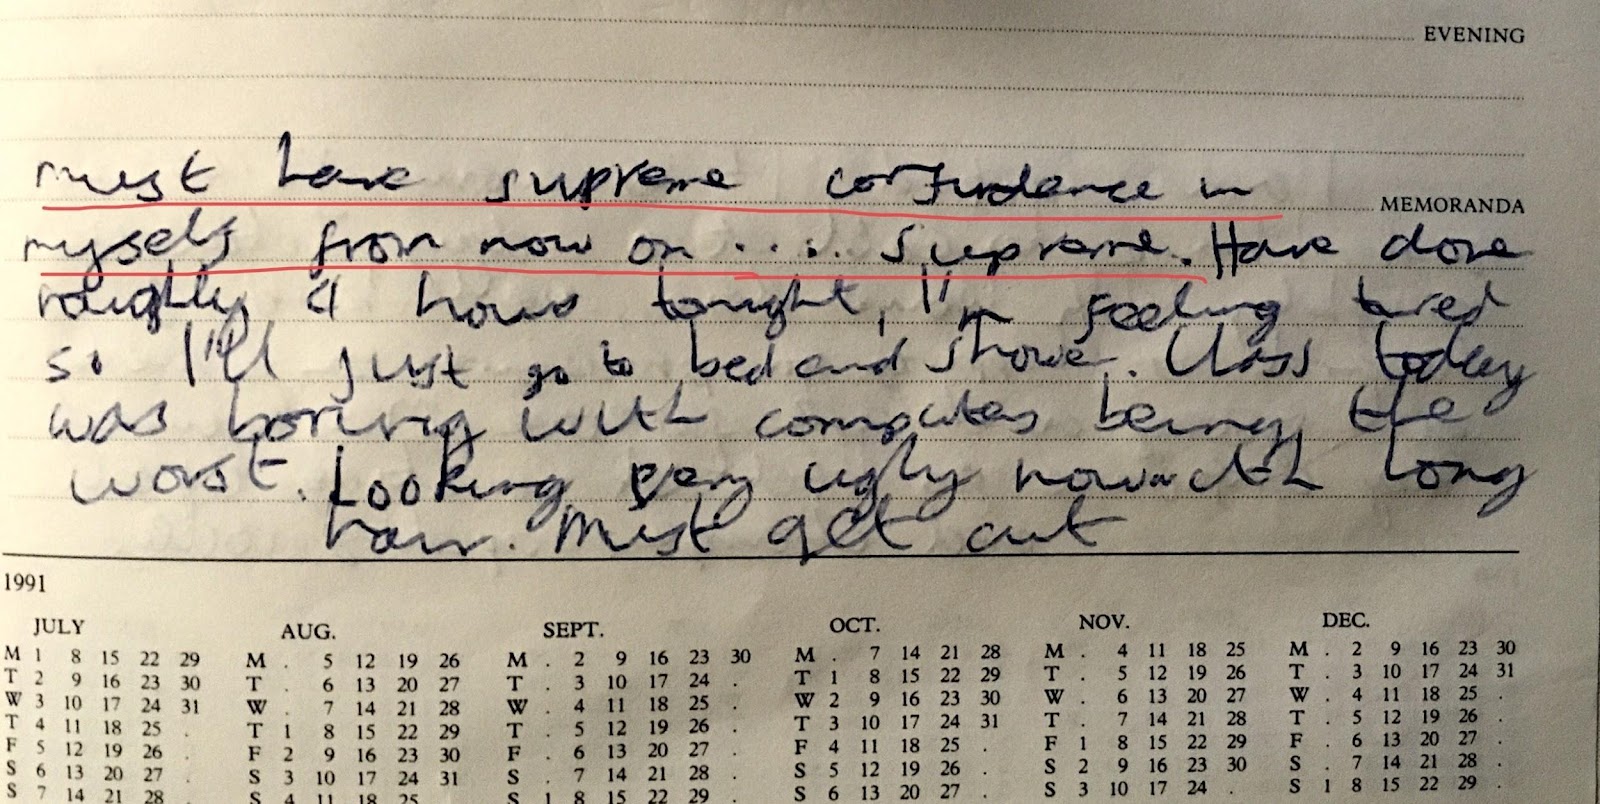 EVENING
must have supreme confidence in
MEMORANDA
myself from now on ..... supreme. Have done
roughly 4 hours tonight, I'm feeling tired
so I'll just go to bed and shower. Class today
was boring with computers being the
worst. Looking very ugly now with long
hair. Must get cut
1991
JULY AUG. SEPT. OCT. NOV. DEC.
M 1 8 15 22 29 M . 5 12 19 26 M . 2 9 16 23 30 M . 7 14 21 28 M . 4 11 18 25 M . 2 9 16 23 30
T 2 9 16 23 30 T . 6 13 20 27 T . 3 10 17 24 . T 1 8 15 22 29 T . 5 12 19 26 T . 3 10 17 24 31
W 3 10 17 24 31 W . 7 14 21 28 W . 4 11 18 25 . W 2 9 16 23 30 W . 6 13 20 27 W . 4 11 18 25 .
T 4 11 18 25 . T 1 8 15 22 29 T . 5 12 19 26 . T 3 10 17 24 31 T . 7 14 21 28 T . 5 12 19 26 .
F 5 12 19 26 . F 2 9 16 23 30 F . 6 13 20 27 . F 4 11 18 25 . F 1 8 15 22 29 F . 6 13 20 27 .
S 6 13 20 27 . S 3 10 17 24 31 S . 7 14 21 28 . S 5 12 19 26 . S 2 9 16 23 30 S . 7 14 21 28 .
S 7 14 21 28 . S 4 11 18 25 S 1 8 15 22 29 . S 6 13 20 27 . S 3 10 17 24 . S 1 8 15 22 29 .